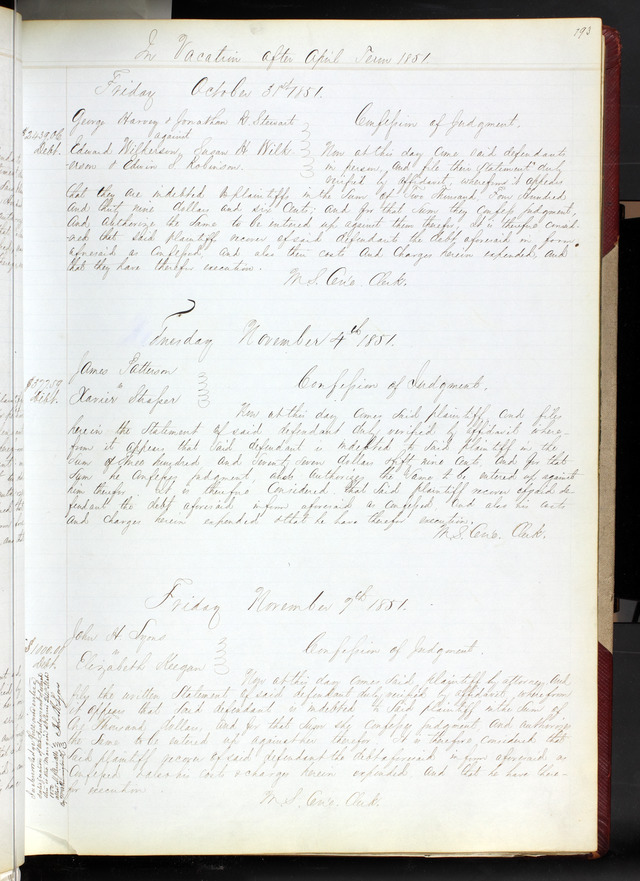 193
In Vacation after April Term 1851.
Friday October 31st 1851.
George Harvey & Jonathan R. Stewart
against
Edward Wilkerson, Logan H Wilk
erson & Edwin S. Robinson.
$2439.06
Debt.
Confession of Judgment.
Now at this day come said defendants
in person, and file their Statement duly
verified by affidavit, wherefrom it appears
that they are indebted to plaintiffs in the Sum of Two thousand, Four Hundred,
and thirty nine dollars and six Cents; and for that sum they Confess judgment,
and authorize the same to be entered up against them therefor, It is therefore consid-
ered that said plaintiff recover of said defendants the debt aforesaid in form
aforesaid as Confessed, and also their costs and charges herein expended, and
that they have therefor execution.
M. S. Cerre. Clerk.
Tuesday November 4th 1851.
James Patterson
"
Xavier Shafer
$577.59
Debt.
Confession of Judgment.
Now at this day comes said plaintiff, and files
herein the Statement of said defendant duly verified by affidavit where-
from it appears that said defendant is indebted to said plaintiff in the
sum of Five hundred, and Seventy Seven dollars & fifty nine Cents, and for that
sum he Confesses judgment, and authorizes the same to be entered up against
him therefor it is therefore Considered that said plaintiff recover of said de-
fendant the debt aforesaid in form aforesaid as Confessed, and also his costs
and charges herein expended & that he have therefor execution.
M. S. Cerre. Clerk.
Friday November 7th 1851.
John H. Lyons
"
Elizabeth Keegan
$1000.00
Debt.
Confession of Judgment.
Now at this day comes said plaintiff by attorney, and
files the written Statement of said defendant duly verified by affidavit, wherefrom
it appears that said defendant is indebted to said plaintiff in the sum of
One Thousand dollars, and for that sum she Confesses judgment, and authorizes
the same to be entered up against her therefor it is therefore, considered that
said plaintiff recover of said defendant the debt aforesaid in form aforesaid as
Confessed & also his costs & charges herein expended, and that he have there-
for execution.
M. S. Cerre. Clerk.